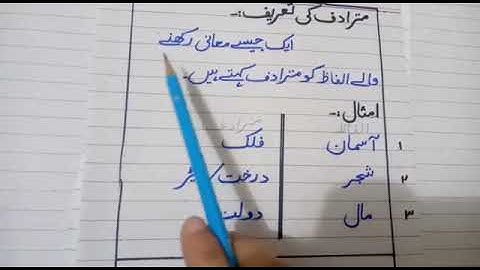 مترادف کی تعریف:۔
ایک جیسے معانی رکھنے
والے الفاظ کو مترادف کہتے ہیں۔
امثال:۔
الفاظ مترادف
۱ آسمان فلک
۲ شجر درخت/
۳ مال دولت